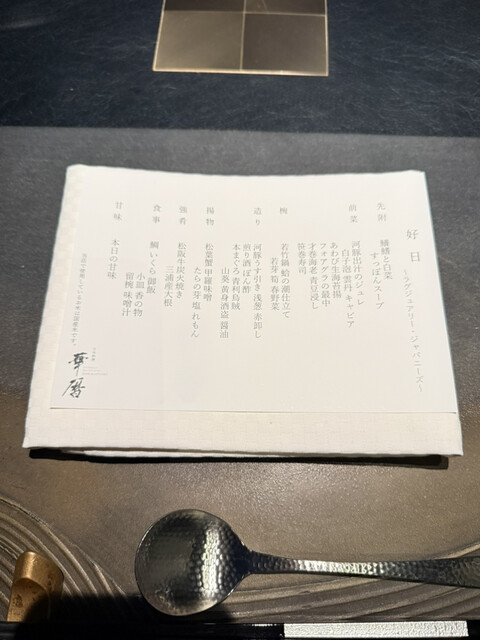 好日 ～ラグジュアリー・ジャパニーズ～
先附
鱶鰭と白菜
すっぽんスープ
前菜
河豚出汁のジュレ
白子 泡雲丹 キャビア
あわび生海苔掛け
フォアグラの最中
才巻海老 青豆浸し
笹巻寿司
椀
若竹鍋 蛤の潮仕立て
若芽 筍 春野菜
造り
河豚うす引き 浅葱 赤卸し
煎り酒 ぽん酢
本まぐろ 青利烏賊
山葵 黄身酒盗 醤油
揚物
松葉蟹 甲羅味噌
たらの芽 塩 れもん
強肴
松阪牛炭火焼き
三浦産大根
食事
鯛 いくら御飯
小皿 香の物
留椀 味噌汁
甘味
本日の甘味
当店で使用しているお米は国産米です。
華暦